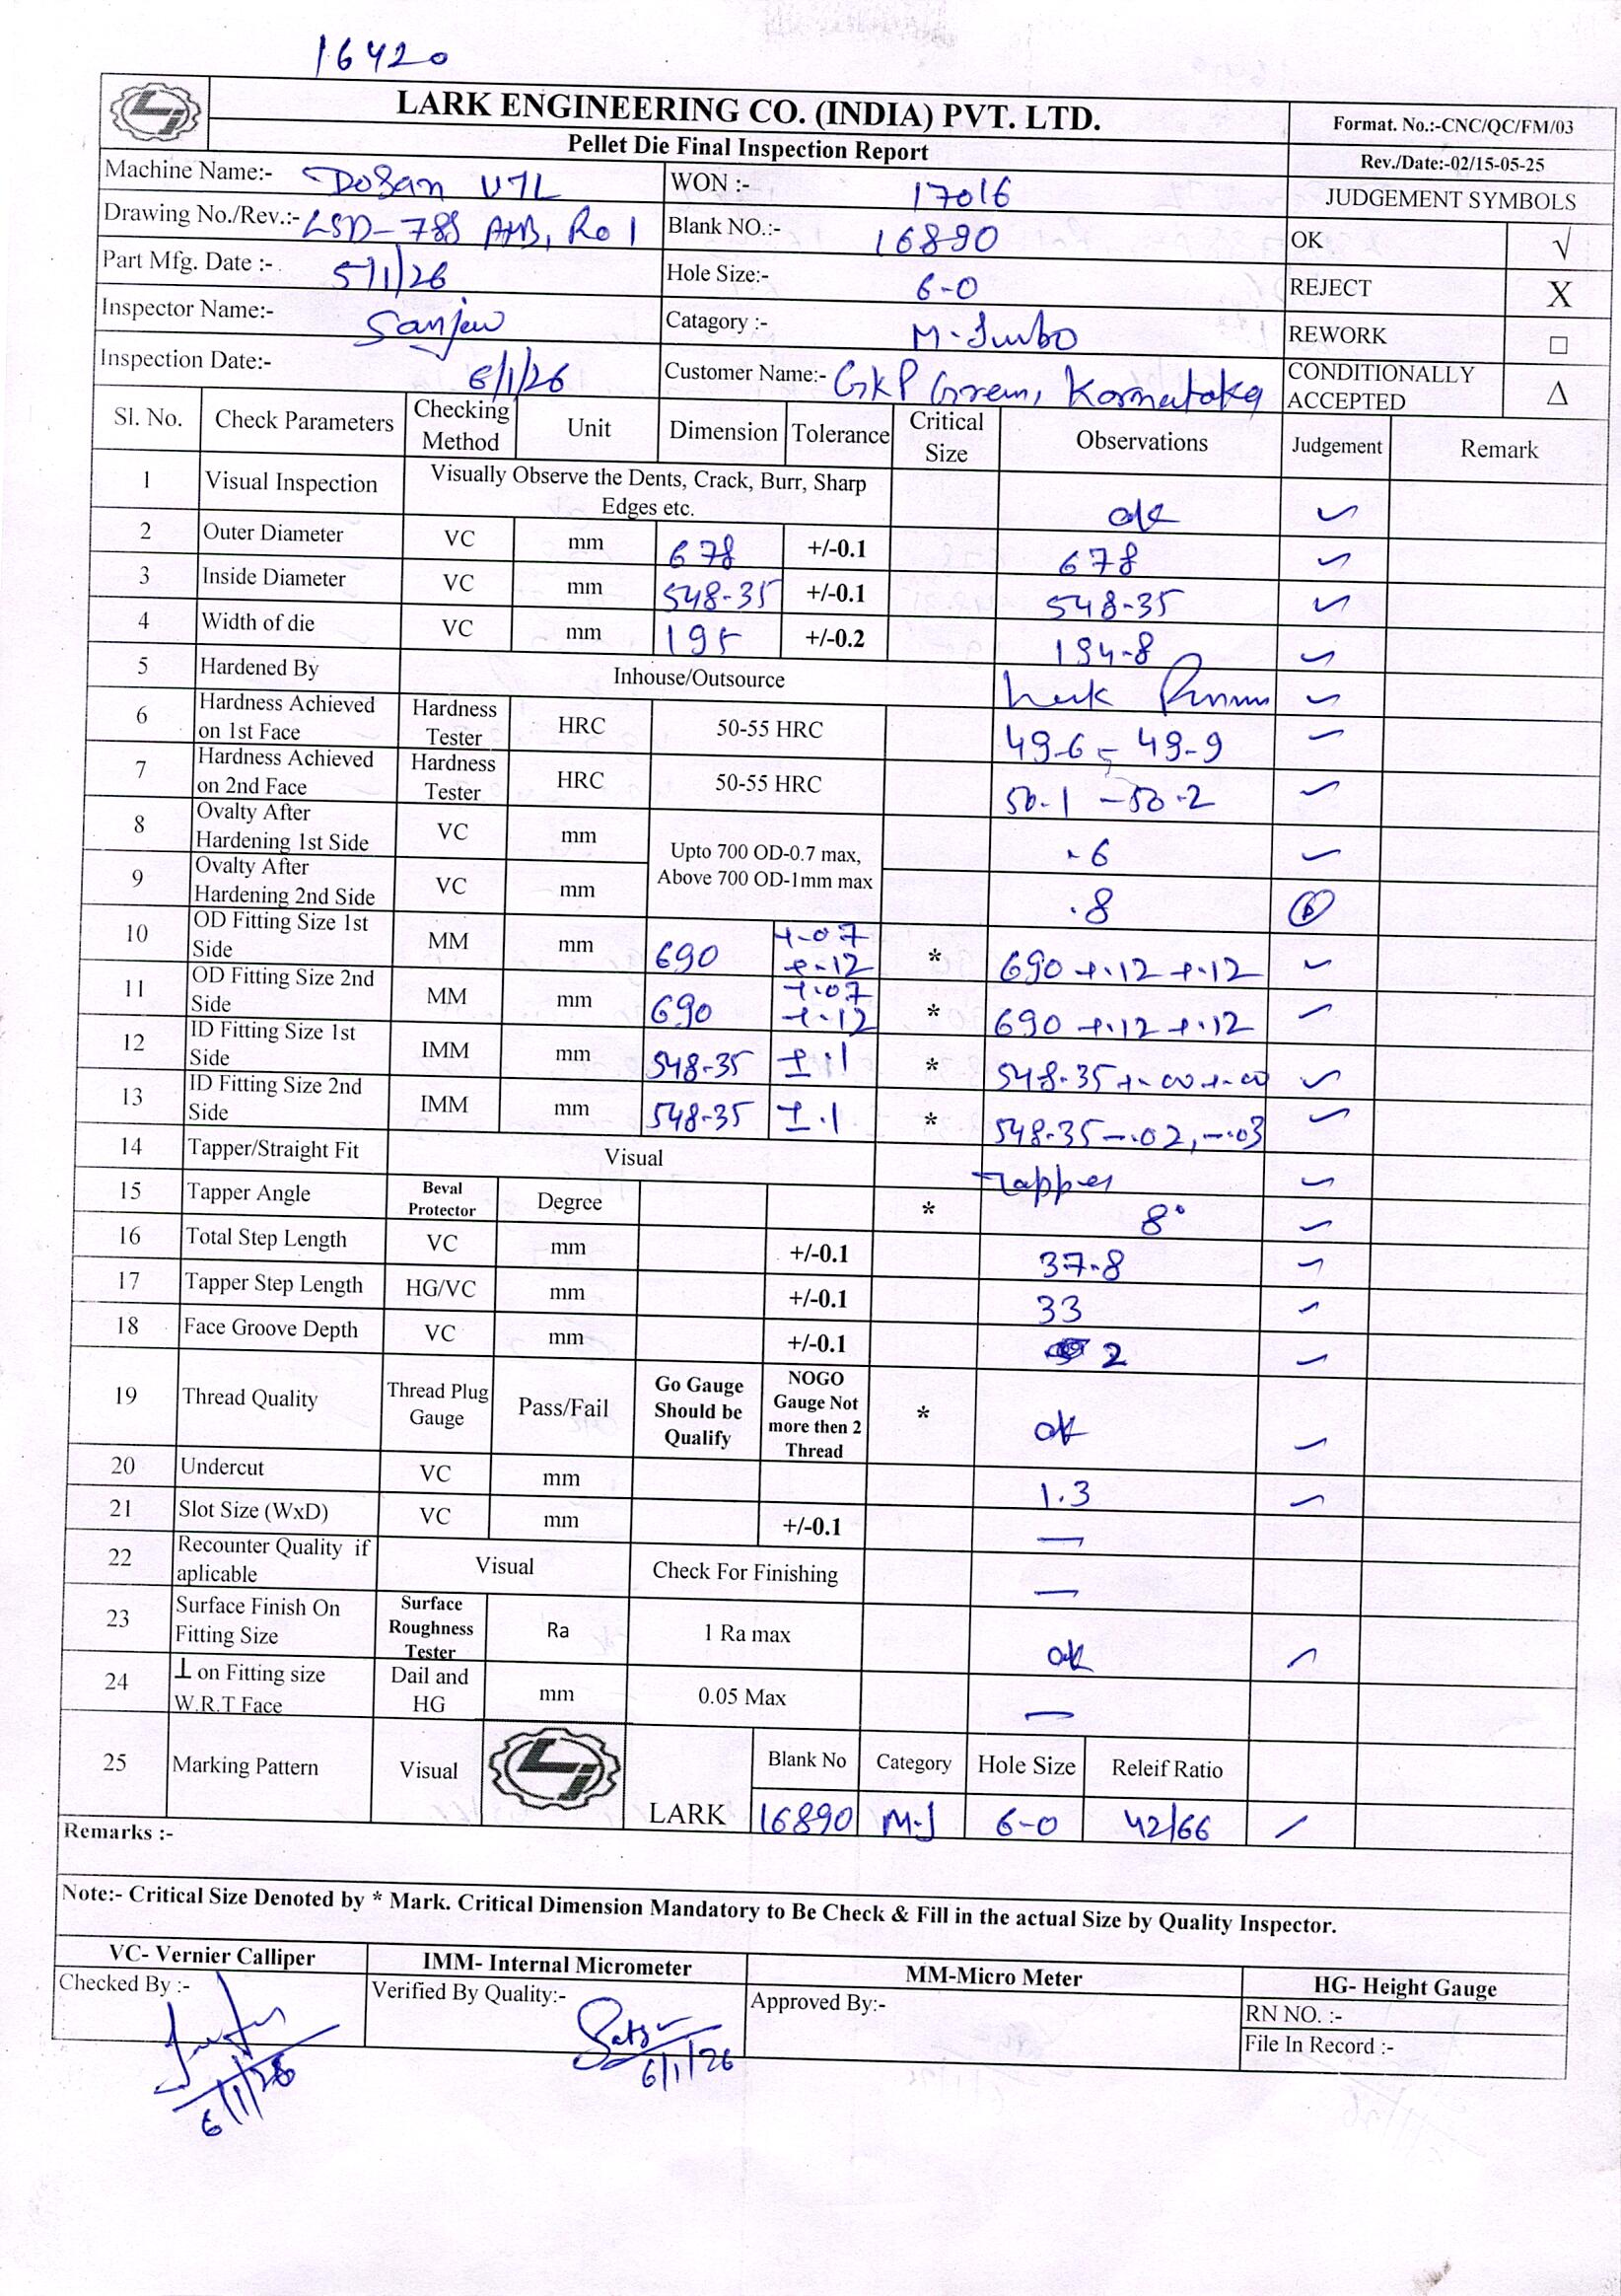 16420
LARK ENGINEERING CO. (INDIA) PVT. LTD.
Pellet Die Final Inspection Report
Format. No.:-CNC/QC/FM/03
Rev./Date:-02/15-05-25
Machine Name:- Dosan VTL WON :- 17016 JUDGEMENT SYMBOLS
Drawing No./Rev.:- LSD-788 AHB, R01 Blank NO.:- 16890 OK √
Part Mfg. Date :- 5/1/26 Hole Size:- 6-0 REJECT X
Inspector Name:- Sanjeev Catagory :- M-Jumbo REWORK □
Inspection Date:- 6/1/26 Customer Name:- GKP Green, Karnataka CONDITIONALLY ACCEPTED Δ
Sl. No. Check Parameters Checking Method Unit Dimension Tolerance Critical Size Observations Judgement Remark
1 Visual Inspection Visually Observe the Dents, Crack, Burr, Sharp Edges etc. ok ✓
2 Outer Diameter VC mm 678 +/-0.1 678 ✓
3 Inside Diameter VC mm 548-35 +/-0.1 548-35 ✓
4 Width of die VC mm 195 +/-0.2 194-8 ✓
5 Hardened By Inhouse/Outsource ✓
6 Hardness Achieved on 1st Face Hardness Tester HRC 50-55 HRC 49-6 - 49-9 ✓
7 Hardness Achieved on 2nd Face Hardness Tester HRC 50-55 HRC 50-1 - 50-2 ✓
8 Ovalty After Hardening 1st Side VC mm Upto 700 OD-0.7 max, Above 700 OD-1mm max .6 ✓
9 Ovalty After Hardening 2nd Side VC mm .8
10 OD Fitting Size 1st Side MM mm 690 +.07 +.12 * 690 +.12 +.12 ✓
11 OD Fitting Size 2nd Side MM mm 690 +.07 +.12 * 690 +.12 +.12 ✓
12 ID Fitting Size 1st Side IMM mm 548-35 ±.1 * 548-35 +.00 +.00 ✓
13 ID Fitting Size 2nd Side IMM mm 548-35 ±.1 * 548-35 -.02, -.03 ✓
14 Tapper/Straight Fit Visual Tapper ✓
15 Tapper Angle Beval Protector Degree * 8° ✓
16 Total Step Length VC mm +/-0.1 37-8 ✓
17 Tapper Step Length HG/VC mm +/-0.1 33 ✓
18 Face Groove Depth VC mm +/-0.1 2 ✓
19 Thread Quality Thread Plug Gauge Pass/Fail Go Gauge Should be Qualify NOGO Gauge Not more then 2 Thread * ok ✓
20 Undercut VC mm 1.3 ✓
21 Slot Size (WxD) VC mm +/-0.1 —
22 Recounter Quality if aplicable Visual Check For Finishing —
23 Surface Finish On Fitting Size Surface Roughness Tester Ra 1 Ra max ok ✓
24 ⊥ on Fitting size W.R.T Face Dail and HG mm 0.05 Max —
25 Marking Pattern Visual LARK Blank No Category Hole Size Releif Ratio
16890 M-J 6-0 42/66 ✓
Remarks :-
Note:- Critical Size Denoted by * Mark. Critical Dimension Mandatory to Be Check & Fill in the actual Size by Quality Inspector.
VC- Vernier Calliper IMM- Internal Micrometer MM-Micro Meter HG- Height Gauge
Checked By :- Verified By Quality:- Approved By:- RN NO. :-
File In Record :-
6/1/26 6/1/26